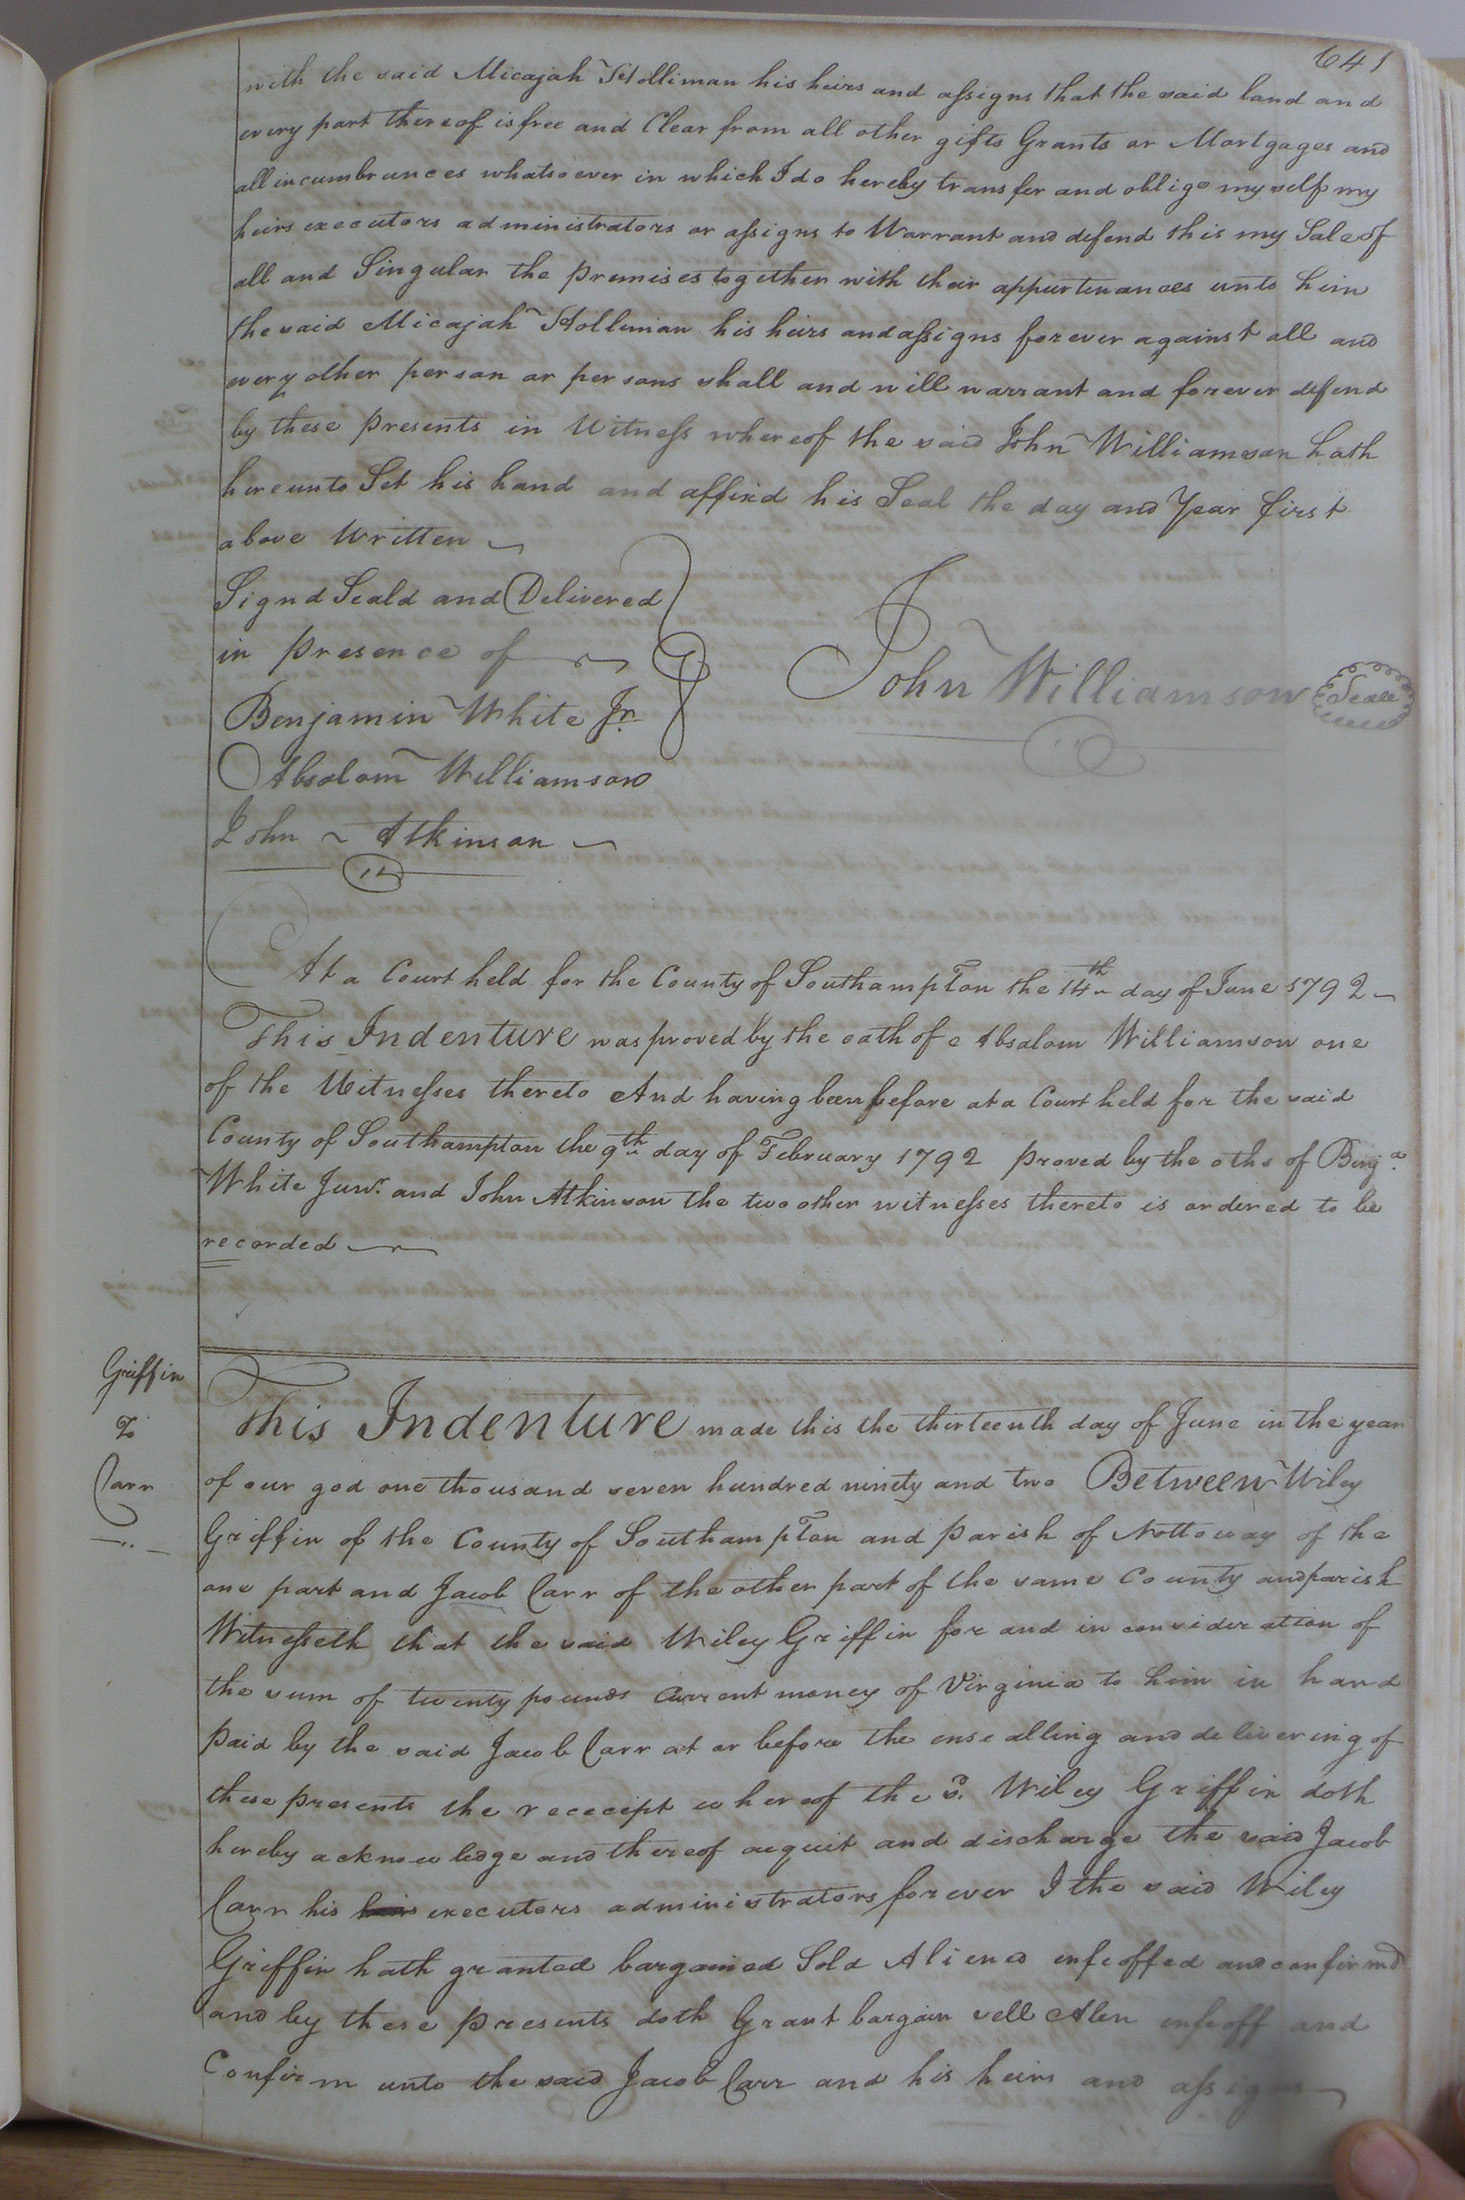 641
with the said Micajah Holliman his heirs and assigns that the said land and
every part thereof is free and Clear from all other gifts Grants or Mortgages and
all incumbrances whatsoever in which I do hereby transfer and oblige myself my
heirs executors administrators or assigns to Warrant and defend this my Sale of
all and Singular the premises together with their appurtenances unto him
the said Micajah Holliman his heirs and assigns forever against all and
every other person or persons shall and will warrant and forever defend
by these presents in Witness whereof the said John Williamson hath
hereunto Set his hand and affixd his Seal the day and Year first
above Written
Signd Seald and Delivered
in presence of
John Williamson Seal
Benjamin White Jr.
Absalom Williamson
John Atkinson
At a Court held for the County of Southampton the 14th day of June 1792
This Indenture was proved by the oath of Absalom Williamson one
of the Witnesses thereto And having been before at a Court held for the said
County of Southampton the 9th day of February 1792 proved by the oths of Benja.
White Junr. and John Atkinson the two other witnesses thereto is ordered to be
recorded
Griffin
To
Carr
This Indenture made this the thirteenth day of June in the year
of our god one thousand seven hundred ninety and two Between Wiley
Griffin of the County of Southampton and parish of Nottoway of the
one part and Jacob Carr of the other part of the same County and parish
Witnesseth that the said Wiley Griffin for and in consideration of
the sum of twenty pounds Current money of Virginia to him in hand
paid by the said Jacob Carr at or before the ensealling and delivering of
these presents the rececipt whereof the sd. Wiley Griffin doth
hereby acknowledge and thereof acquit and discharge the said Jacob
Carr his heirs executors administrators forever I the said Wiley
Griffin hath granted bargained Sold Aliened enfeoffed and confirmd
and by these presents doth Grant bargain sell Alen enfeoff and
Confirm unto the said Jacob Carr and his heirs and assigns